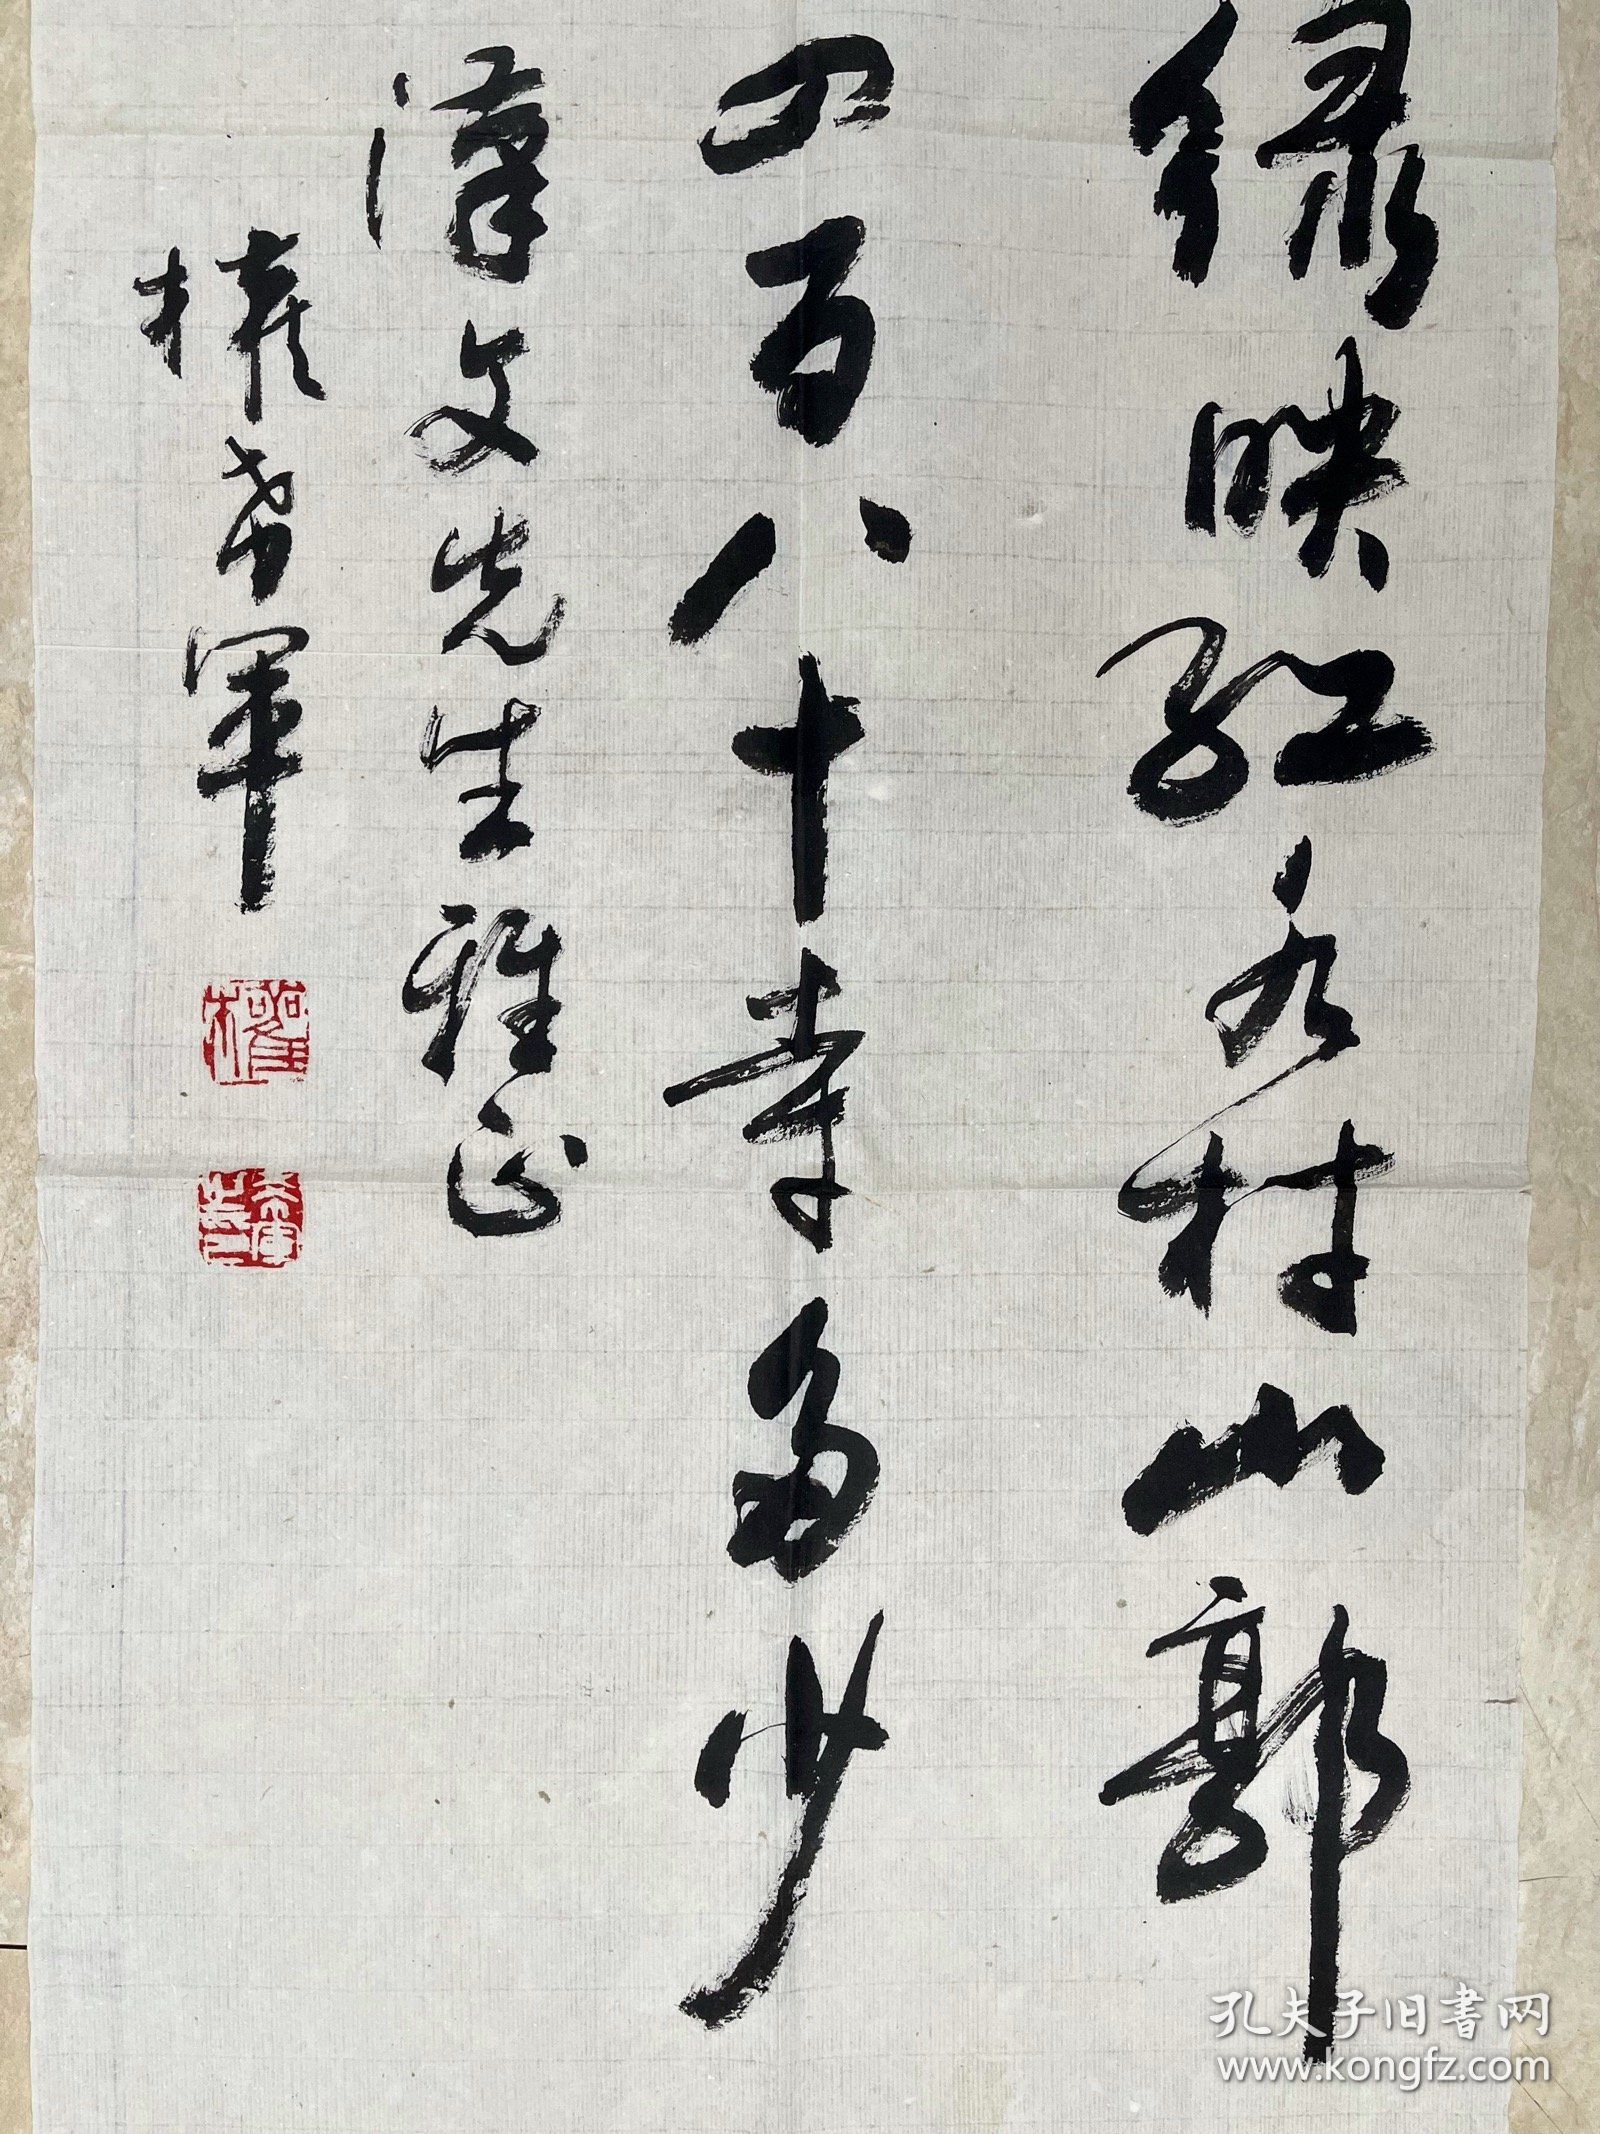 緑映紅水村山郭
四百八十寺多少
漢文先生雅正
權希軍
權
孔夫子旧书网
www.kongfz.com